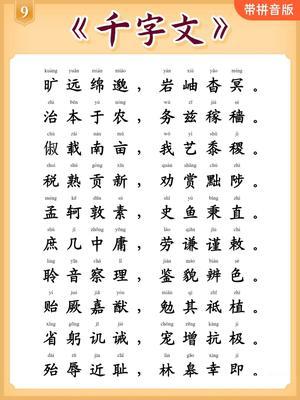 9
《千字文》
带拼音版
kuàng yuǎn mián miǎo yán xiù yǎo míng
旷远绵邈，岩岫杳冥。
zhì běn yú nóng wù zī jià sè
治本于农，务兹稼穑。
chù zǎi nán mǔ wǒ yì shǔ jì
俶载南亩，我艺黍稷。
shuì shú gòng xīn quàn shǎng chù zhì
税熟贡新，劝赏黜陟。
mèng kē dūn sù shǐ yú bǐng zhí
孟轲敦素，史鱼秉直。
shù jī zhōng yōng láo qiān jǐn chì
庶几中庸，劳谦谨敕。
líng yīn chá lǐ jiàn mào biàn sè
聆音察理，鉴貌辨色。
yí jué jiā yóu miǎn qí zhī zhí
贻厥嘉猷，勉其祗植。
xǐng gōng jī jiè chǒng zēng kàng jí
省躬讥诫，宠增抗极。
dài rǔ jìn chǐ lín gāo xìng jí
殆辱近耻，林皋幸即。